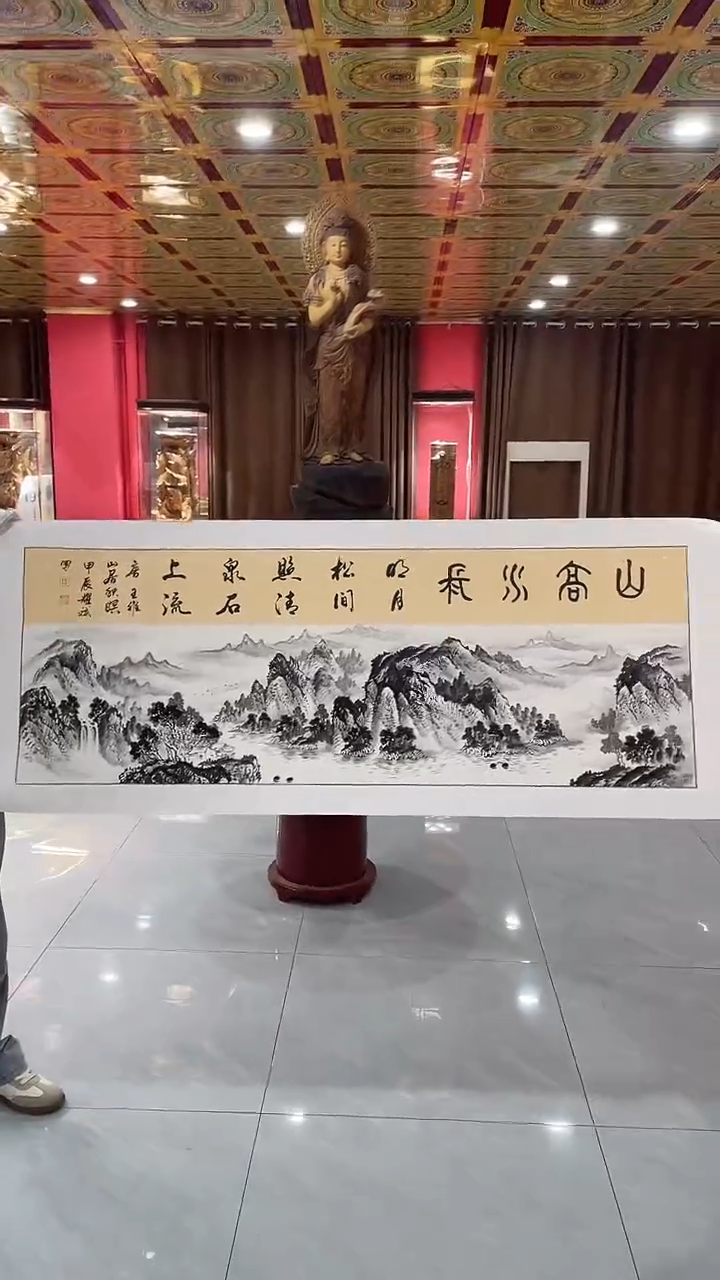 山
高
水
長
明月
松間
照清
泉石
上流
唐王維
山居秋暝
甲辰